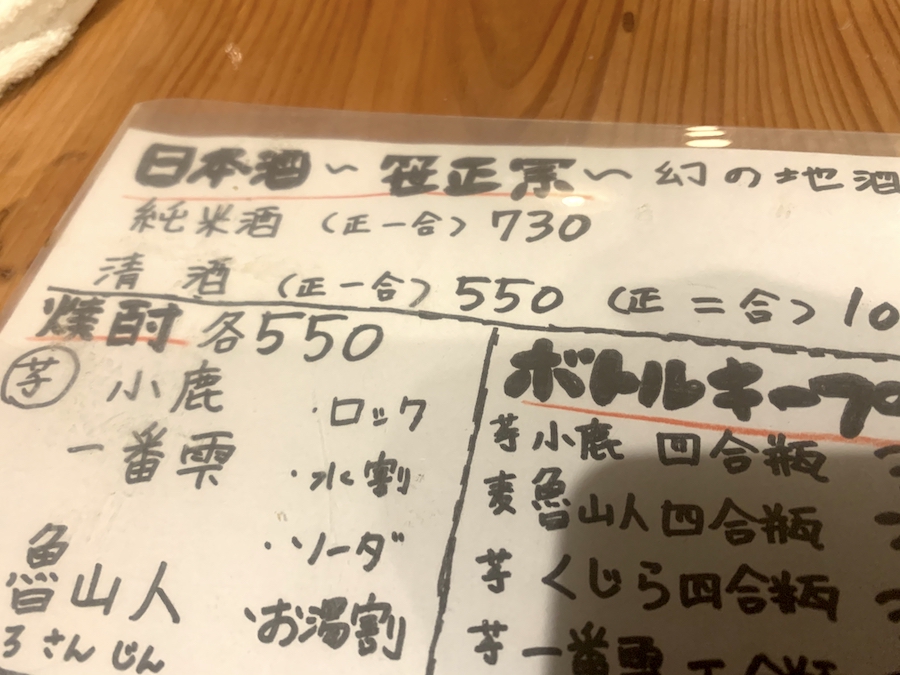 日本酒 ~ 笹正宗 ~ 幻の地酒
純米酒 (正一合) 730
清酒 (正一合) 550 (正二合) 10
焼酎 各550
芋 小鹿
一番雫
魯山人
ろさんじん
・ロック
・水割
・ソーダ
・お湯割
ボトルキープ
芋 小鹿 四合瓶
麦 魯山人 四合瓶
芋 くじら 四合瓶
芋 一番雫 合瓶